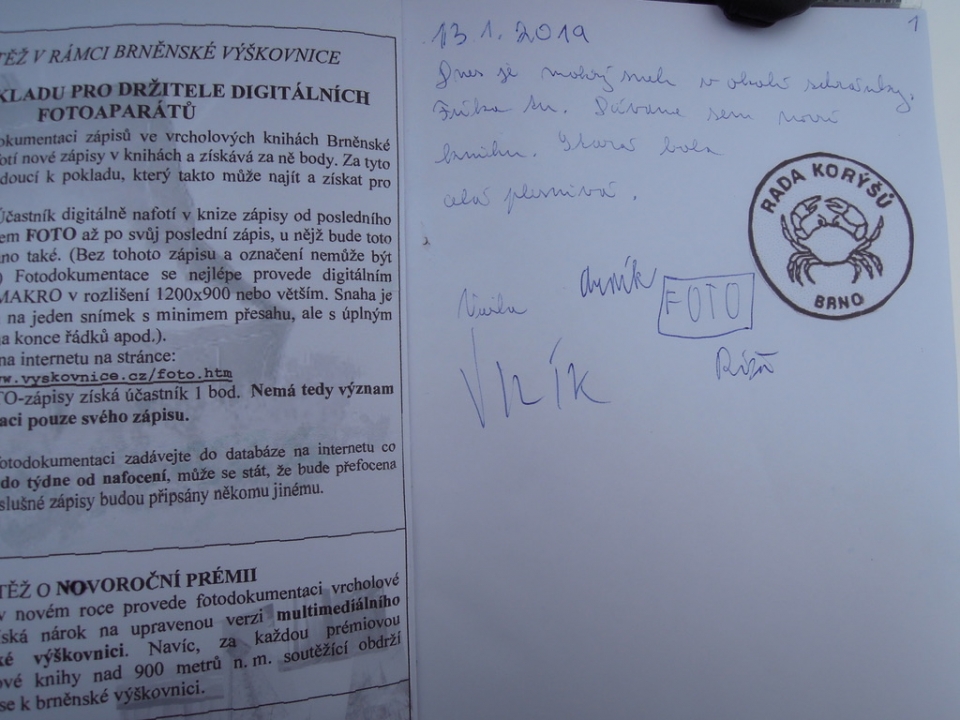 TĚŽ V RÁMCI BRNĚNSKÉ VÝŠKOVNICE
KLADU PRO DRŽITELE DIGITÁLNÍCH
FOTOAPARÁTŮ
okumentaci zápisů ve vrcholových knihách Brněnské
fotí nové zápisy v knihách a získává za ně body. Za tyto
doucí k pokladu, který takto může najít a získat pro
Účastník digitálně nafotí v knize zápisy od posledního
em FOTO až po svůj poslední zápis, u nějž bude toto
no také. (Bez tohoto zápisu a označení nemůže být
) Fotodokumentace se nejlépe provede digitálním
MAKRO v rozlišení 1200x900 nebo větším. Snaha je
na jeden snímek s minimem přesahu, ale s úplným
a konce řádků apod.).
na internetu na stránce:
w.vyskovnice.cz/foto.htm
TO-zápisy získá účastník 1 bod. Nemá tedy význam
aci pouze svého zápisu.
otodokumentaci zadávejte do databáze na internetu co
do týdne od nafocení, může se stát, že bude přefocena
slušné zápisy budou připsány někomu jinému.
TĚŽ O NOVOROČNÍ PRÉMII
v novém roce provede fotodokumentaci vrcholové
íská nárok na upravenou verzi multimediálního
ké výškovnici. Navíc, za každou prémiovou
ové knihy nad 900 metrů n. m. soutěžící obdrží
se k brněnské výškovnici.
1
13.1.2019
Dnes je v okolí schránky.
Dáváme sem novou
knihu. Stará byla
celá plesnivá.
RADA KORÝŠŮ
BRNO
FOTO